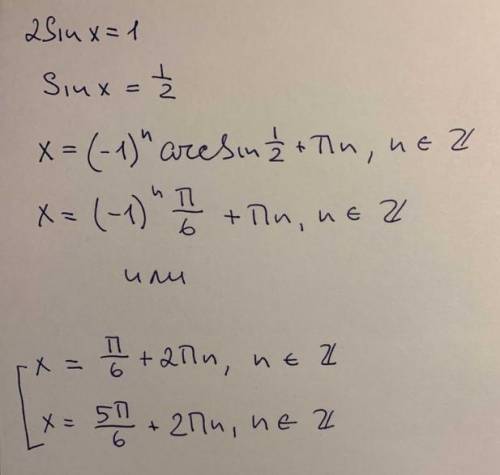 2Sin x = 1
Sin x = 1/2
x = (-1)ⁿ arcSin 1/2 + πn, n ∈ ℤ
x = (-1)ⁿ π/6 + πn, n ∈ ℤ
или
x = π/6 + 2πn, n ∈ ℤ
x = 5π/6 + 2πn, n ∈ ℤ